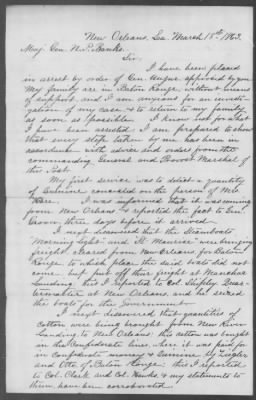 New Orleans, La. March 18th, 1863.
Maj. Gen. N. P. Banks.
Sir
I have been placed
in arrest by order of Gen. Augur approved by you
My family are in Baton Rouge, without means
of support, and I am anxious for an investi-
gation of my case, & to return to my family
as soon as possible. I know not for what
I have been arrested. I am prepared to show
that every step taken by me has been in
accordance with advice and orders from the
commanding General and Provost Marshal of
this Post.
My first service was to detect a quantity
of Quinine concealed on the person of Mrs
I was informed that it was coming
from New Orleans & reported the fact to Gen.
Grover three days before it arrived.
I next discovered that the Steamboats
Morning Light and St. Maurice were bringing
freight, cleared from New Orleans for Baton
Rouge, to which place the said boats did not
come but put off their freight at Manchac
Landing. this I reported to Col. Shipley Quar-
termaster at New Orleans, and he seized
the boats for the Government.
I next discovered that quantities of
cotton were being brought from New River
Landing to New Orleans. this cotton was bought
in the Confederate lines, where it was paid for
in confederate money & Quinine by Zeigler
and Otto of Baton Rouge. this I reported
to Col. Clark and Col. & my statements to
them have been corroborated.